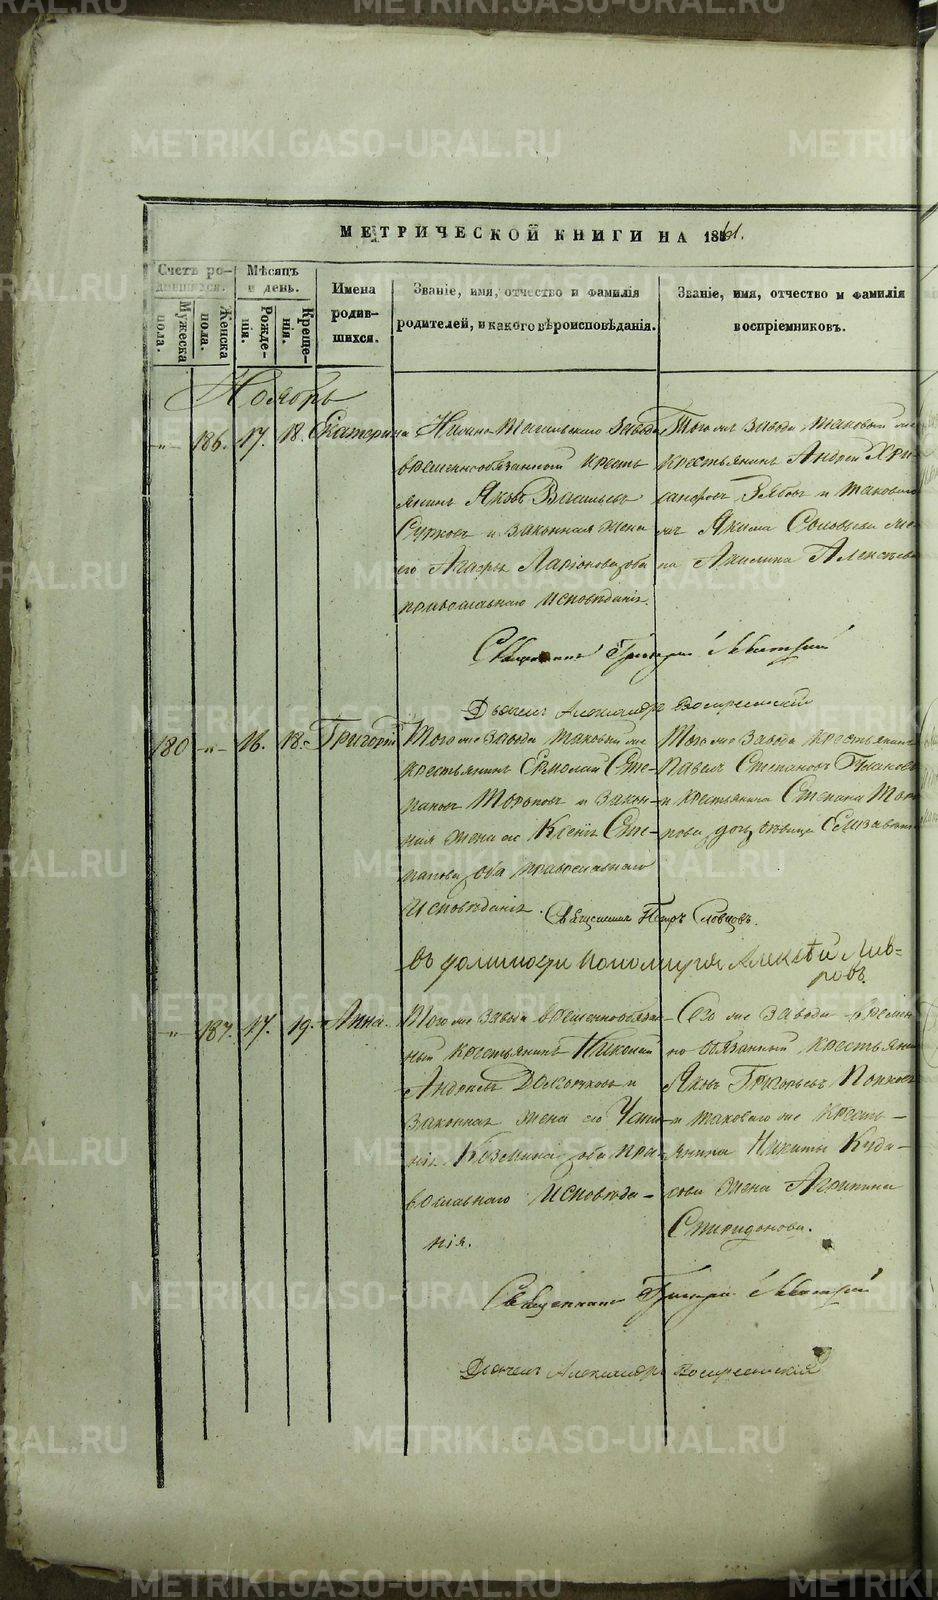 METRIKI.GASO-URAL.RU
МЕТРИЧЕСКОЙ КНИГИ НА 1861.
Счетъ родившихся.
Мужеска пола.
Женска пола.
Мѣсяцъ и день.
Рожденія.
Крещенія.
Имена родившихся.
Званіе, имя, отчество и фамилія родителей, и какого вѣроисповѣданія.
Званіе, имя, отчество и фамилія воспріемниковъ.
Ноябрь
-"- 186. 17. 18. Екатерина
Нижне Тагильскаго завода
временнообязанный кресть
янинъ Яковъ Васильевъ
и законная жена
его Агафья Ларіонова, оба
православнаго исповѣданія.
Того же завода таковый же
крестьянинъ Андрей Хри
санфовъ и таковаго
жъ Якима Соловьева же
на Акилина Алексѣева
Священникъ Григорій Левитскій
Дьячекъ Александръ Воскресенскій
180 -"- 16. 18. Григорій
Того же завода таковый же
крестьянинъ Ермолай Сте-
пановъ Тороповъ и закон-
ная жена его Ксенія Сте-
панова, оба православнаго
исповѣданія.
Того же завода крестьянинъ
Павелъ Степановъ
и крестьянина Степана Торо
пова дочь дѣвица Елизавета
Священникъ Петръ Словцовъ.
въ должности пономаря Алексѣй Лив-
ровъ.
" 187. 17. 19. Анна.
Того же завода временнообязан
ный крестьянинъ Николай
Андреевъ и
законная жена его Усти
нія Козмина, оба пра
вославнаго исповѣда-
нія.
Сего же завода времен
но обязанный крестьянин
Яковъ Григорьевъ Попковъ
и таковаго же кресть-
янина Никиты
жена Агрипина
Спиридонова.
Священникъ Григорій Левитскій
Дьячекъ Александръ Воскресенскій